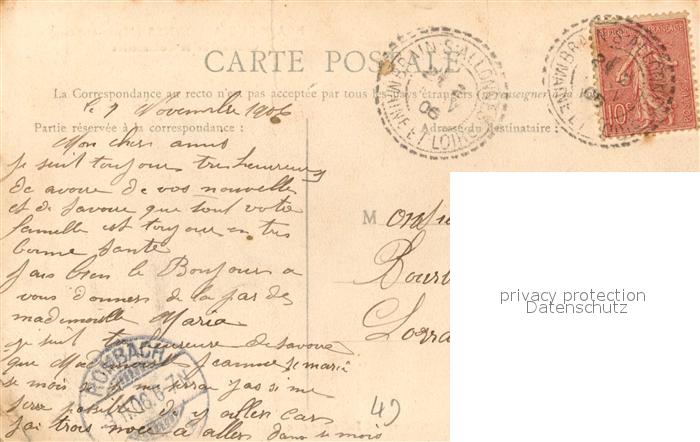 CARTE POSTALE
La Correspondance au recto n'est pas acceptée par tous les pays étrangers (Se renseigner à la
le 7 Novembre 1906
Partie réservée à la correspondance :
Adresse du Destinataire :
Mon cher amis
je suit toujours tres heureux
de avoire de vos nouvelle
et de Savoire que tout votre
famelle est toujour en tres
bonne Sante
jais bien le Bonjour a
vous donner de la par de
mademoiselle Maria
je suit tres heureuse de savoire
que jeanne se marie
se mois si me
sera posible de y aller car
jai trois noce a aller dans si mois
M onsie
Bour
Lorra
49
BRAIN-S-ALLONNES
MAINE-ET-LOIRE
06
RÉPUBLIQUE FRANÇAISE
10c
ROMBACH
.11.06.6-7
privacy protection
Datenschutz